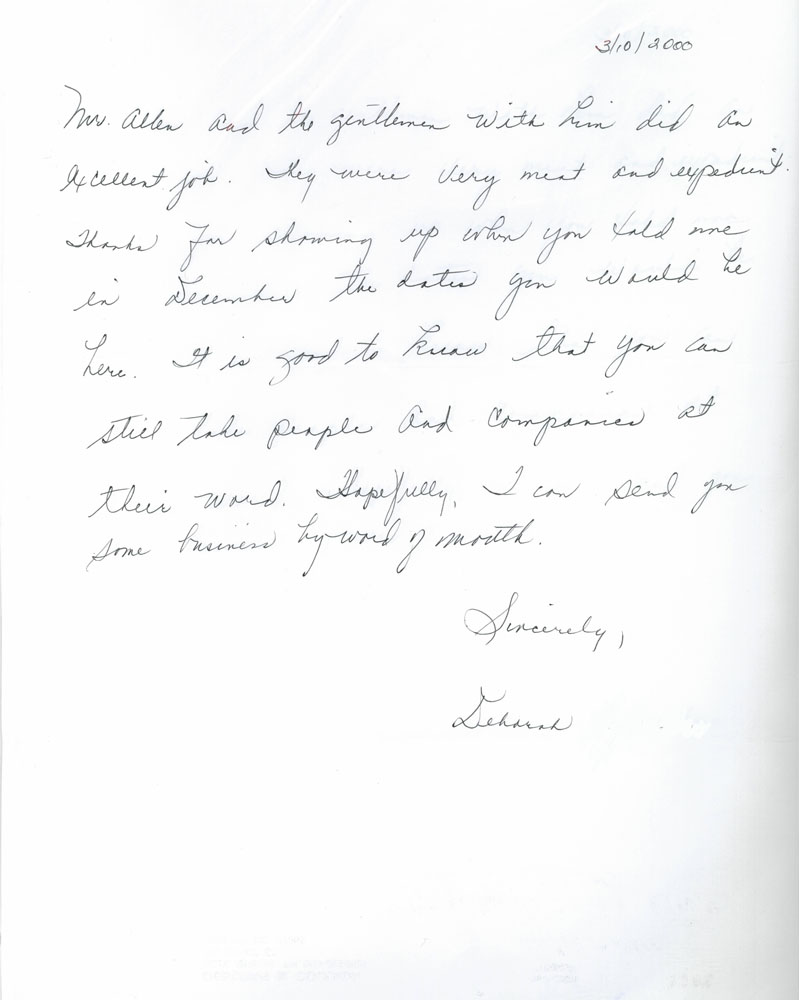 3/10/2000
Mr. Allen and the gentlemen with him did an
excellent job. They were very neat and expedient.
Thanks for showing up when you told me
in December the dates you would be
here. It is good to know that you can
still take people and companies at
their word. Hopefully, I can send you
some business by word of mouth.
Sincerely,
Deborah